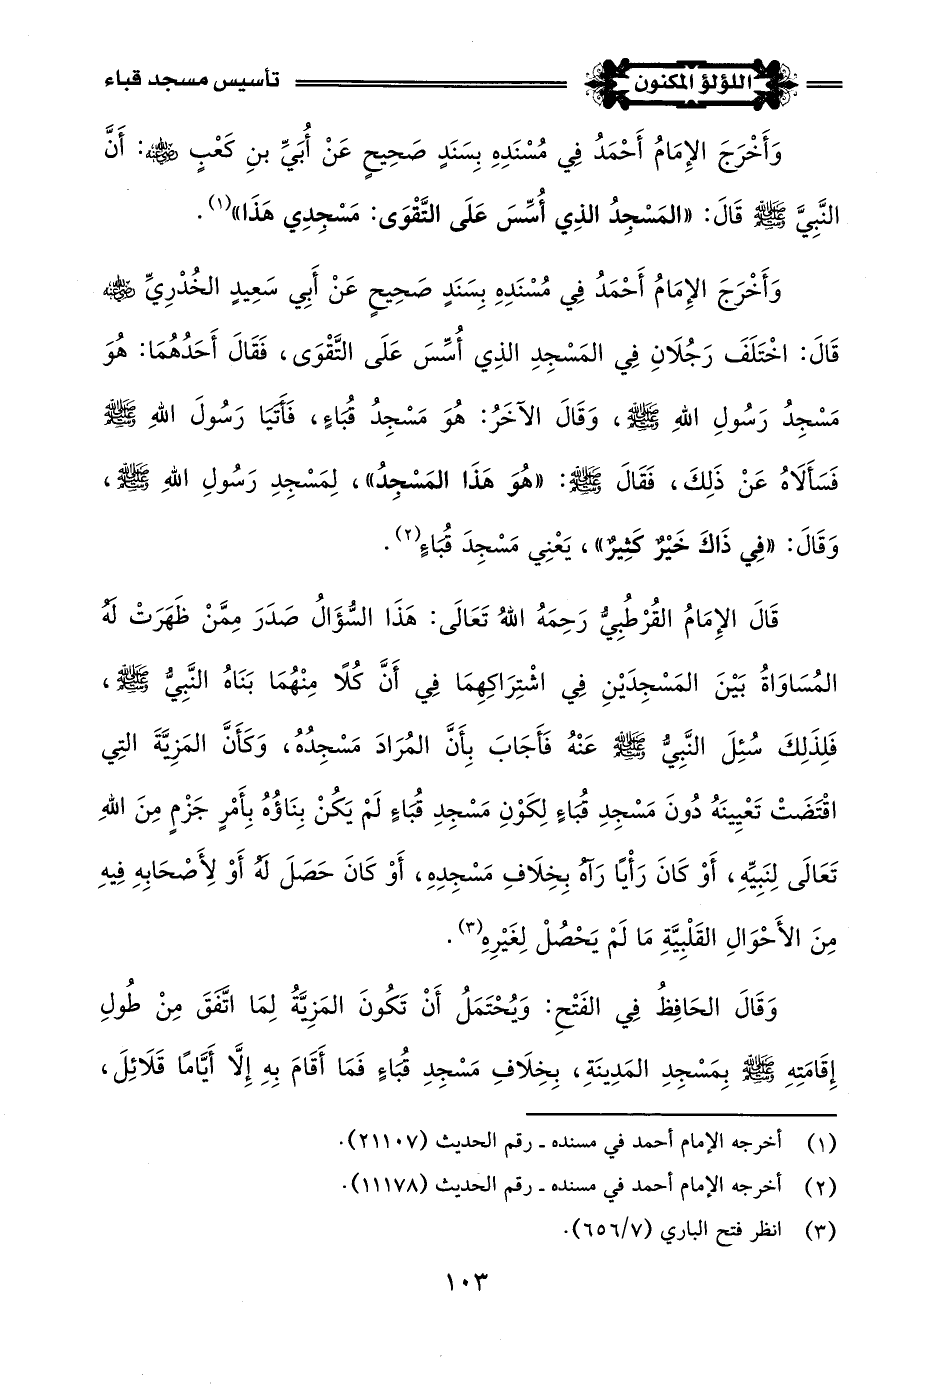 اللؤلؤ المكنون
تأسيس مسجد قباء
وَأَخْرَجَ الإِمَامُ أَحْمَدُ فِي مُسْنَدِهِ بِسَنَدٍ صَحِيحٍ عَنْ أُبَيِّ بنِ كَعْبٍ رضي الله عنه: أَنَّ
النَّبِيَّ ﷺ قَالَ: «المَسْجِدُ الذِي أُسِّسَ عَلَى التَّقْوَى: مَسْجِدِي هَذَا»(١).
وَأَخْرَجَ الإِمَامُ أَحْمَدُ فِي مُسْنَدِهِ بِسَنَدٍ صَحِيحٍ عَنْ أَبِي سَعِيدٍ الخُدْرِيِّ رضي الله عنه
قَالَ: اخْتَلَفَ رَجُلَانِ فِي المَسْجِدِ الذِي أُسِّسَ عَلَى التَّقْوَى، فَقَالَ أَحَدُهُمَا: هُوَ
مَسْجِدُ رَسُولِ اللهِ ﷺ، وَقَالَ الآخَرُ: هُوَ مَسْجِدُ قُبَاءٍ، فَأَتَيَا رَسُولَ اللهِ ﷺ
فَسَأَلَاهُ عَنْ ذَلِكَ، فَقَالَ ﷺ: «هُوَ هَذَا المَسْجِدُ»، لِمَسْجِدِ رَسُولِ اللهِ ﷺ،
وَقَالَ: «فِي ذَاكَ خَيْرٌ كَثِيرٌ»، يَعْنِي مَسْجِدَ قُبَاءٍ(٢).
قَالَ الإِمَامُ القُرْطُبِيُّ رَحِمَهُ اللهُ تَعَالَى: هَذَا السُّؤَالُ صَدَرَ مِمَّنْ ظَهَرَتْ لَهُ
المُسَاوَاةُ بَيْنَ المَسْجِدَيْنِ فِي اشْتِرَاكِهِمَا فِي أَنَّ كُلًا مِنْهُمَا بَنَاهُ النَّبِيُّ ﷺ،
فَلِذَلِكَ سُئِلَ النَّبِيُّ ﷺ عَنْهُ فَأَجَابَ بِأَنَّ المُرَادَ مَسْجِدُهُ، وَكَأَنَّ المَزِيَّةَ التِي
اقْتَضَتْ تَعْيِينَهُ دُونَ مَسْجِدِ قُبَاءٍ لِكَوْنِ مَسْجِدِ قُبَاءٍ لَمْ يَكُنْ بِنَاؤُهُ بِأَمْرٍ جَزْمٍ مِنَ اللهِ
تَعَالَى لِنَبِيِّهِ، أَوْ كَانَ رَأْيًا رَآهُ بِخِلَافِ مَسْجِدِهِ، أَوْ كَانَ حَصَلَ لَهُ أَوْ لِأَصْحَابِهِ فِيهِ
مِنَ الأَحْوَالِ القَلْبِيَّةِ مَا لَمْ يَحْصُلْ لِغَيْرِهِ(٣).
وَقَالَ الحَافِظُ فِي الفَتْحِ: وَيُحْتَمَلُ أَنْ تَكُونَ المَزِيَّةُ لِمَا اتَّفَقَ مِنْ طُولِ
إِقَامَتِهِ ﷺ بِمَسْجِدِ المَدِينَةِ، بِخِلَافِ مَسْجِدِ قُبَاءٍ فَمَا أَقَامَ بِهِ إِلَّا أَيَّامًا قَلَائِلَ،
(١) أخرجه الإمام أحمد في مسنده - رقم الحديث (٢١١٠٧).
(٢) أخرجه الإمام أحمد في مسنده - رقم الحديث (١١١٧٨).
(٣) انظر فتح الباري (٦٥٦/٧).
١٠٣